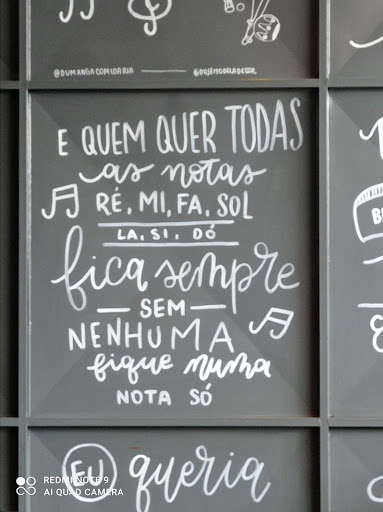 @DUMANGACOMIDARIA
E QUEM QUER TODAS
as notas
RÉ, MI, FA, SOL
LA, SI, DÓ
fica sempre
SEM
NENHUMA
fique numa
NOTA SÓ
EU queria
REDMI NOTE 9
AI QUAD CAMERA